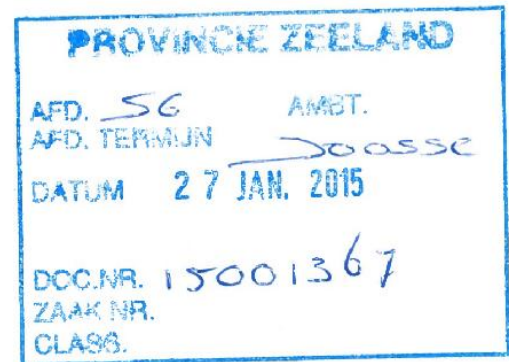 PROVINCIE ZEELAND
AFD. SG AMBT.
AFD. TERMIJN Joosse
DATUM 27 JAN. 2015
DOC.NR. 15001367
ZAAK NR.
CLASS.